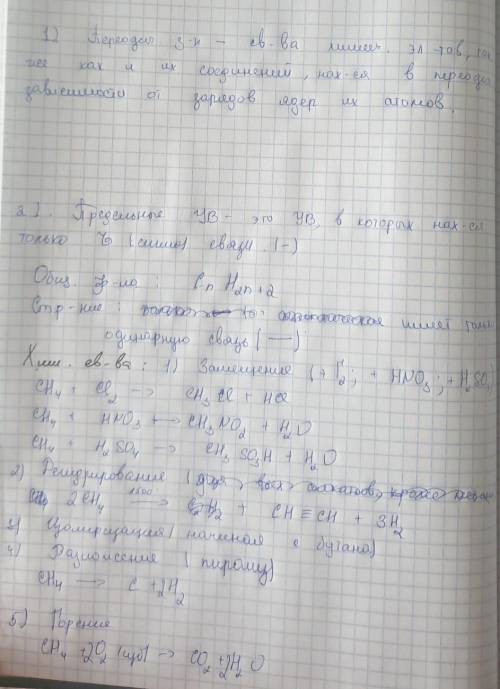 1) Периодич з-н – св-ва химич. эл-тов, так
же как и их соединений, нах-ся в периодич
зависимости от зарядов ядер их атомов.
2). Предельные УВ – это УВ, в которых нах-ся
только б (сигма) связи. (-)
Общ. ф-ла : CnH2n+2
Стр-ние : имеет только
одинарную связь (—)
Хим. св-ва : 1) Замещение (+ Г2 ; + HNO3 ; + H2SO4
CH4 + Cl2 –> CH3Cl + HCl
CH4 + HNO3 –> CH3NO2 + H2O
CH4 + H2SO4 –> CH3SO3H + H2O
2) Дегидрирование (для
2CH4 1500 –> CH≡CH + 3H2
3) Изомеризация (начиная с бутана)
4) Разложение (пиролиз)
CH4 –> C + 2H2
5) Горение
CH4 + 2O2 (изб) –> CO2 + 2H2O